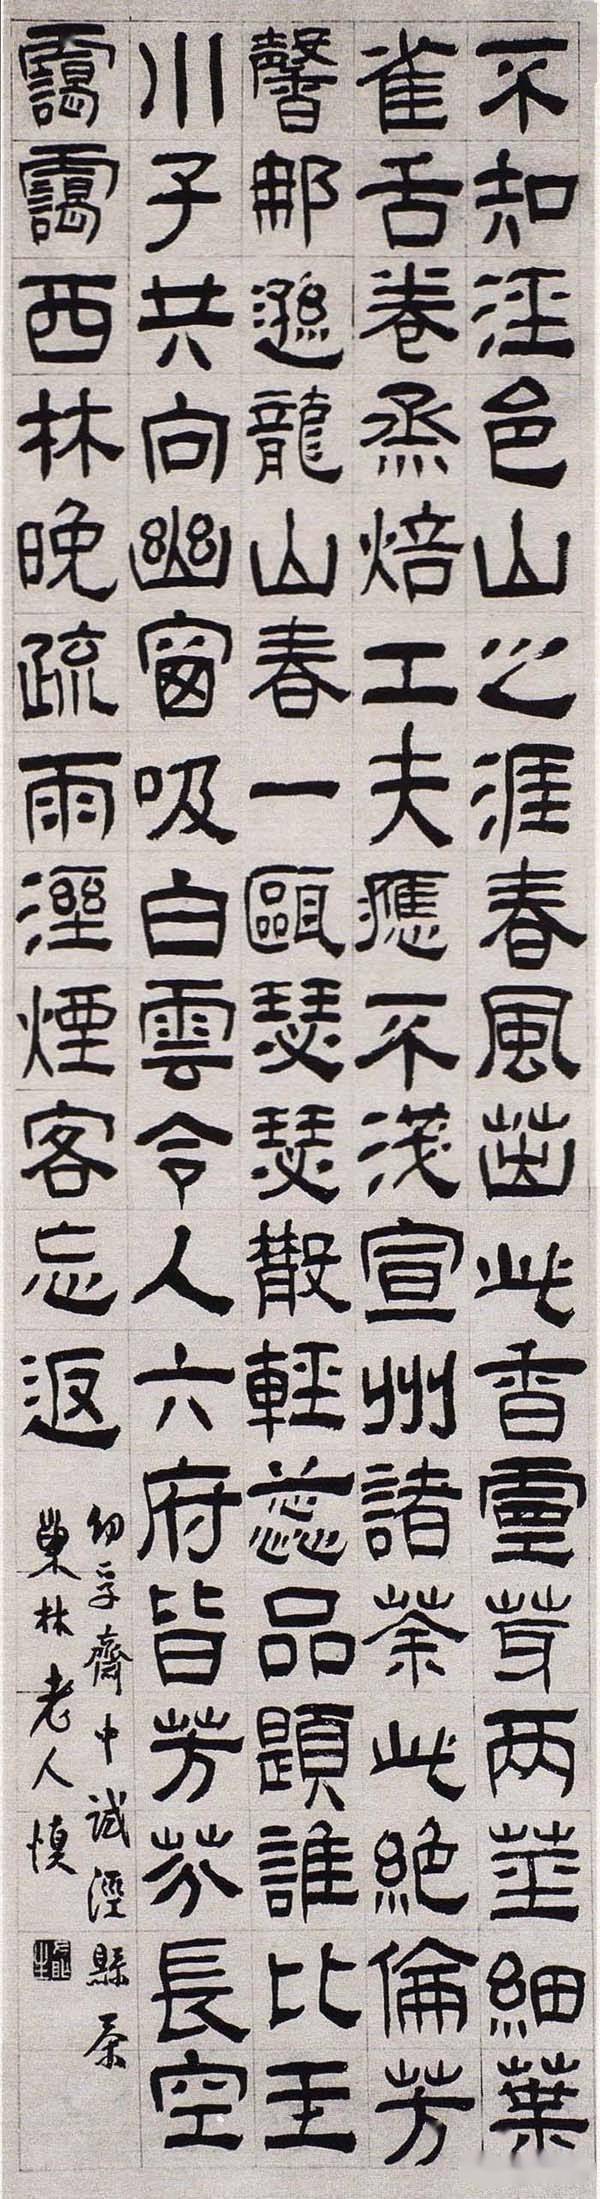 不知涇邑山之涯春風茁此香靈芽兩莖細葉
雀舌卷烝焙工夫應不淺宣州諸茶此絕倫芳
馨那遜龍山春一甌瑟瑟散輕蕊品題誰比玉
川子共向幽窗吸白雲令人六府皆芳芬長空
靄靄西林晚疏雨溼煙客忘返
幼孚齋中試涇縣茶
巢林老人慎